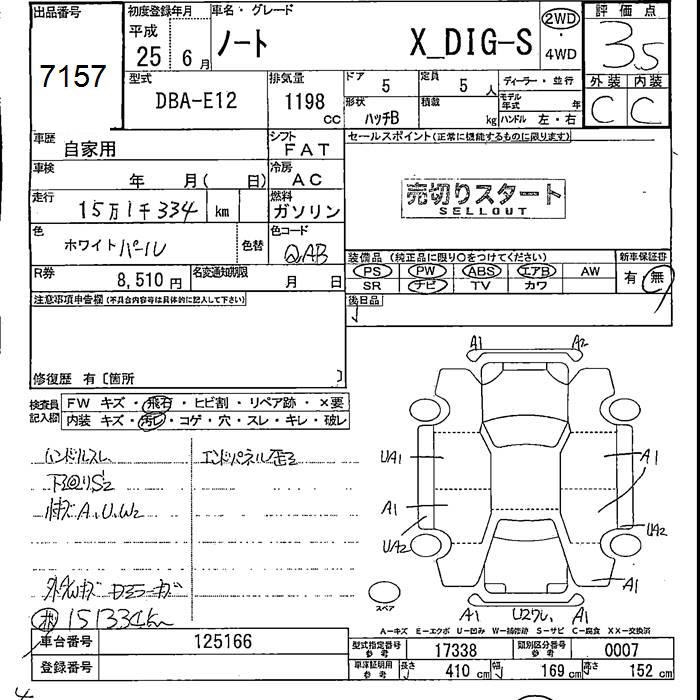 出品番号 初度登録年月 車名・グレード 評価点
7157 平成 25 年 6 月 ノート X_DIG-S 2WD・4WD 3.5
型式 DBA-E12 排気量 1198 cc ドア 5 定員 5 人 ディーラー・並行 外装 内装
形状 ハッチB 積載 kg モデル年式 年 ハンドル 左・右 C C
車歴 自家用 シフト FAT セールスポイント(正常に機能するものに限ります)
車検 年 月( 日) 冷房 AC
走行 15万1千334 km 燃料 ガソリン 売切りスタート
SELLOUT
色 ホワイトパール 色替 色コード QAB
装備品 (純正品に限り○をつけてください) 新車保証書
PS PW ABS エアB AW 有・無
R券 8,510 円 名変通知期限 月 日 SR ナビ TV カワ
注意事項申告欄(不具合内容等は具体的に記入して下さい) 後日品
修復歴 有〔箇所 〕
検査員記入欄 FW キズ・飛石・ヒビ割・リペア跡・×要
内装 キズ・汚レ・コゲ・穴・スレ・キレ・破レ
ハンドルスレ エンドパネル歪2
A、U、W2
151334km
A1 A2
UA1 A1
A1
UA2 UA2
A1
スペア A1 A1
A-キズ E-エクボ U-凹み W-補修跡 S-サビ C-腐食 XX-交換済
車台番号 125166 型式指定番号 参考 17338 類別区分番号 参考 0007
登録番号 車庫証明用 参考 長さ 410 cm 幅 169 cm 高さ 152 cm